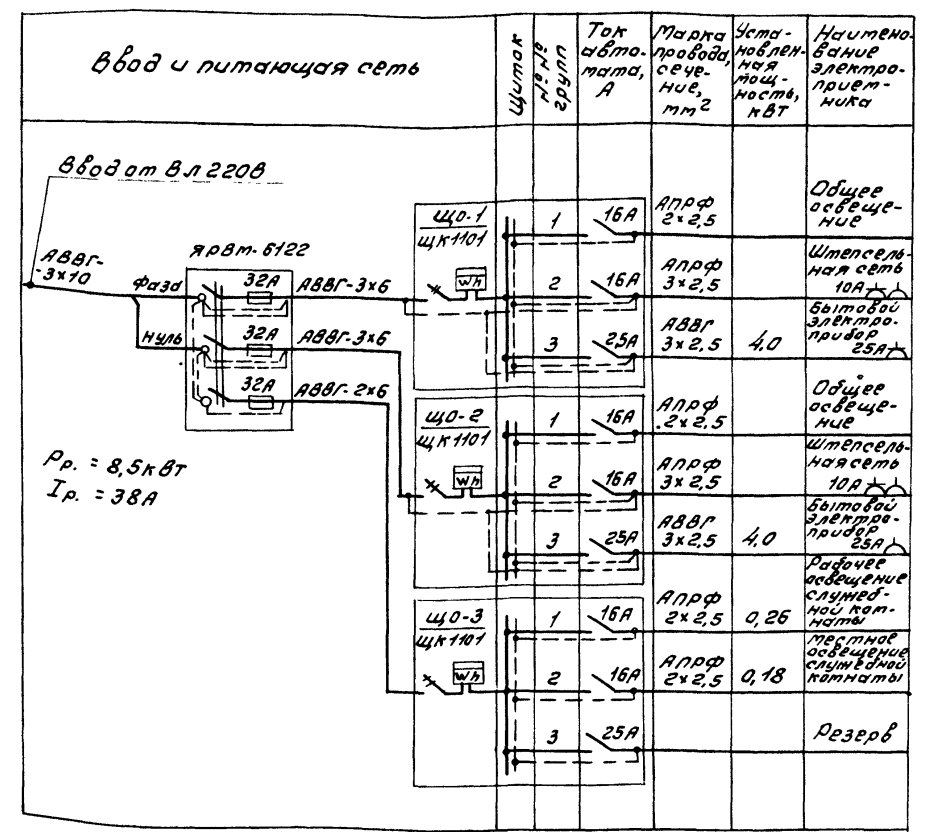 Ввод и питающая сеть
Щиток
№№
групп
Ток
авто-
мата,
А
Марка
провода,
сече-
ние,
мм2
Уста-
новлен-
ная
мощ-
ность,
кВт
Наимено-
вание
электро-
прием-
ника
Ввод от Вл 220В
АВВГ-
-3×10
ЯРВт-6122
фаза
32А
АВВГ-3×6
нуль
32А
АВВГ-3×6
32А
АВВГ-2×6
Рр. = 8,5кВт
Iр. = 38А
ЩО-1
ЩК1101
Wh
1
16А
АПРФ
2×2,5
Общее
освеще-
ние
2
16А
АПРФ
3×2,5
Штепсель-
ная сеть
10А
3
25А
АВВГ
3×2,5
4,0
Бытовой
электро-
прибор
25А
ЩО-2
ЩК1101
Wh
1
16А
АПРФ
2×2,5
Общее
освеще-
ние
2
16А
АПРФ
3×2,5
Штепсель-
ная сеть
10А
3
25А
АВВГ
3×2,5
4,0
Бытовой
электро-
прибор
25А
ЩО-3
ЩК1101
Wh
1
16А
АПРФ
2×2,5
0,26
Рабочее
освещение
служеб-
ной ком-
наты
2
16А
АПРФ
2×2,5
0,18
Местное
освещение
служебной
комнаты
3
25А
Резерв